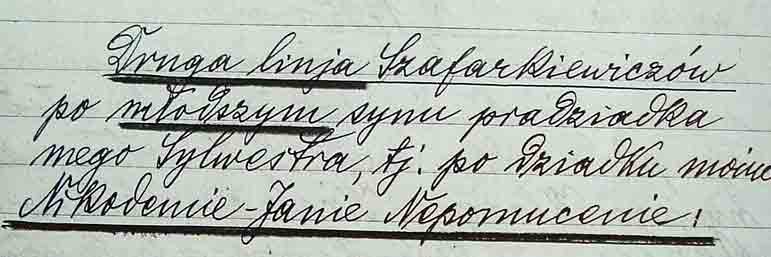 Druga linja Szafarkiewiczów
po młodszym synu pradziadka
mego Sylwestra, tj. po dziadku moim
Nikodemie-Janie Nepomucenie: